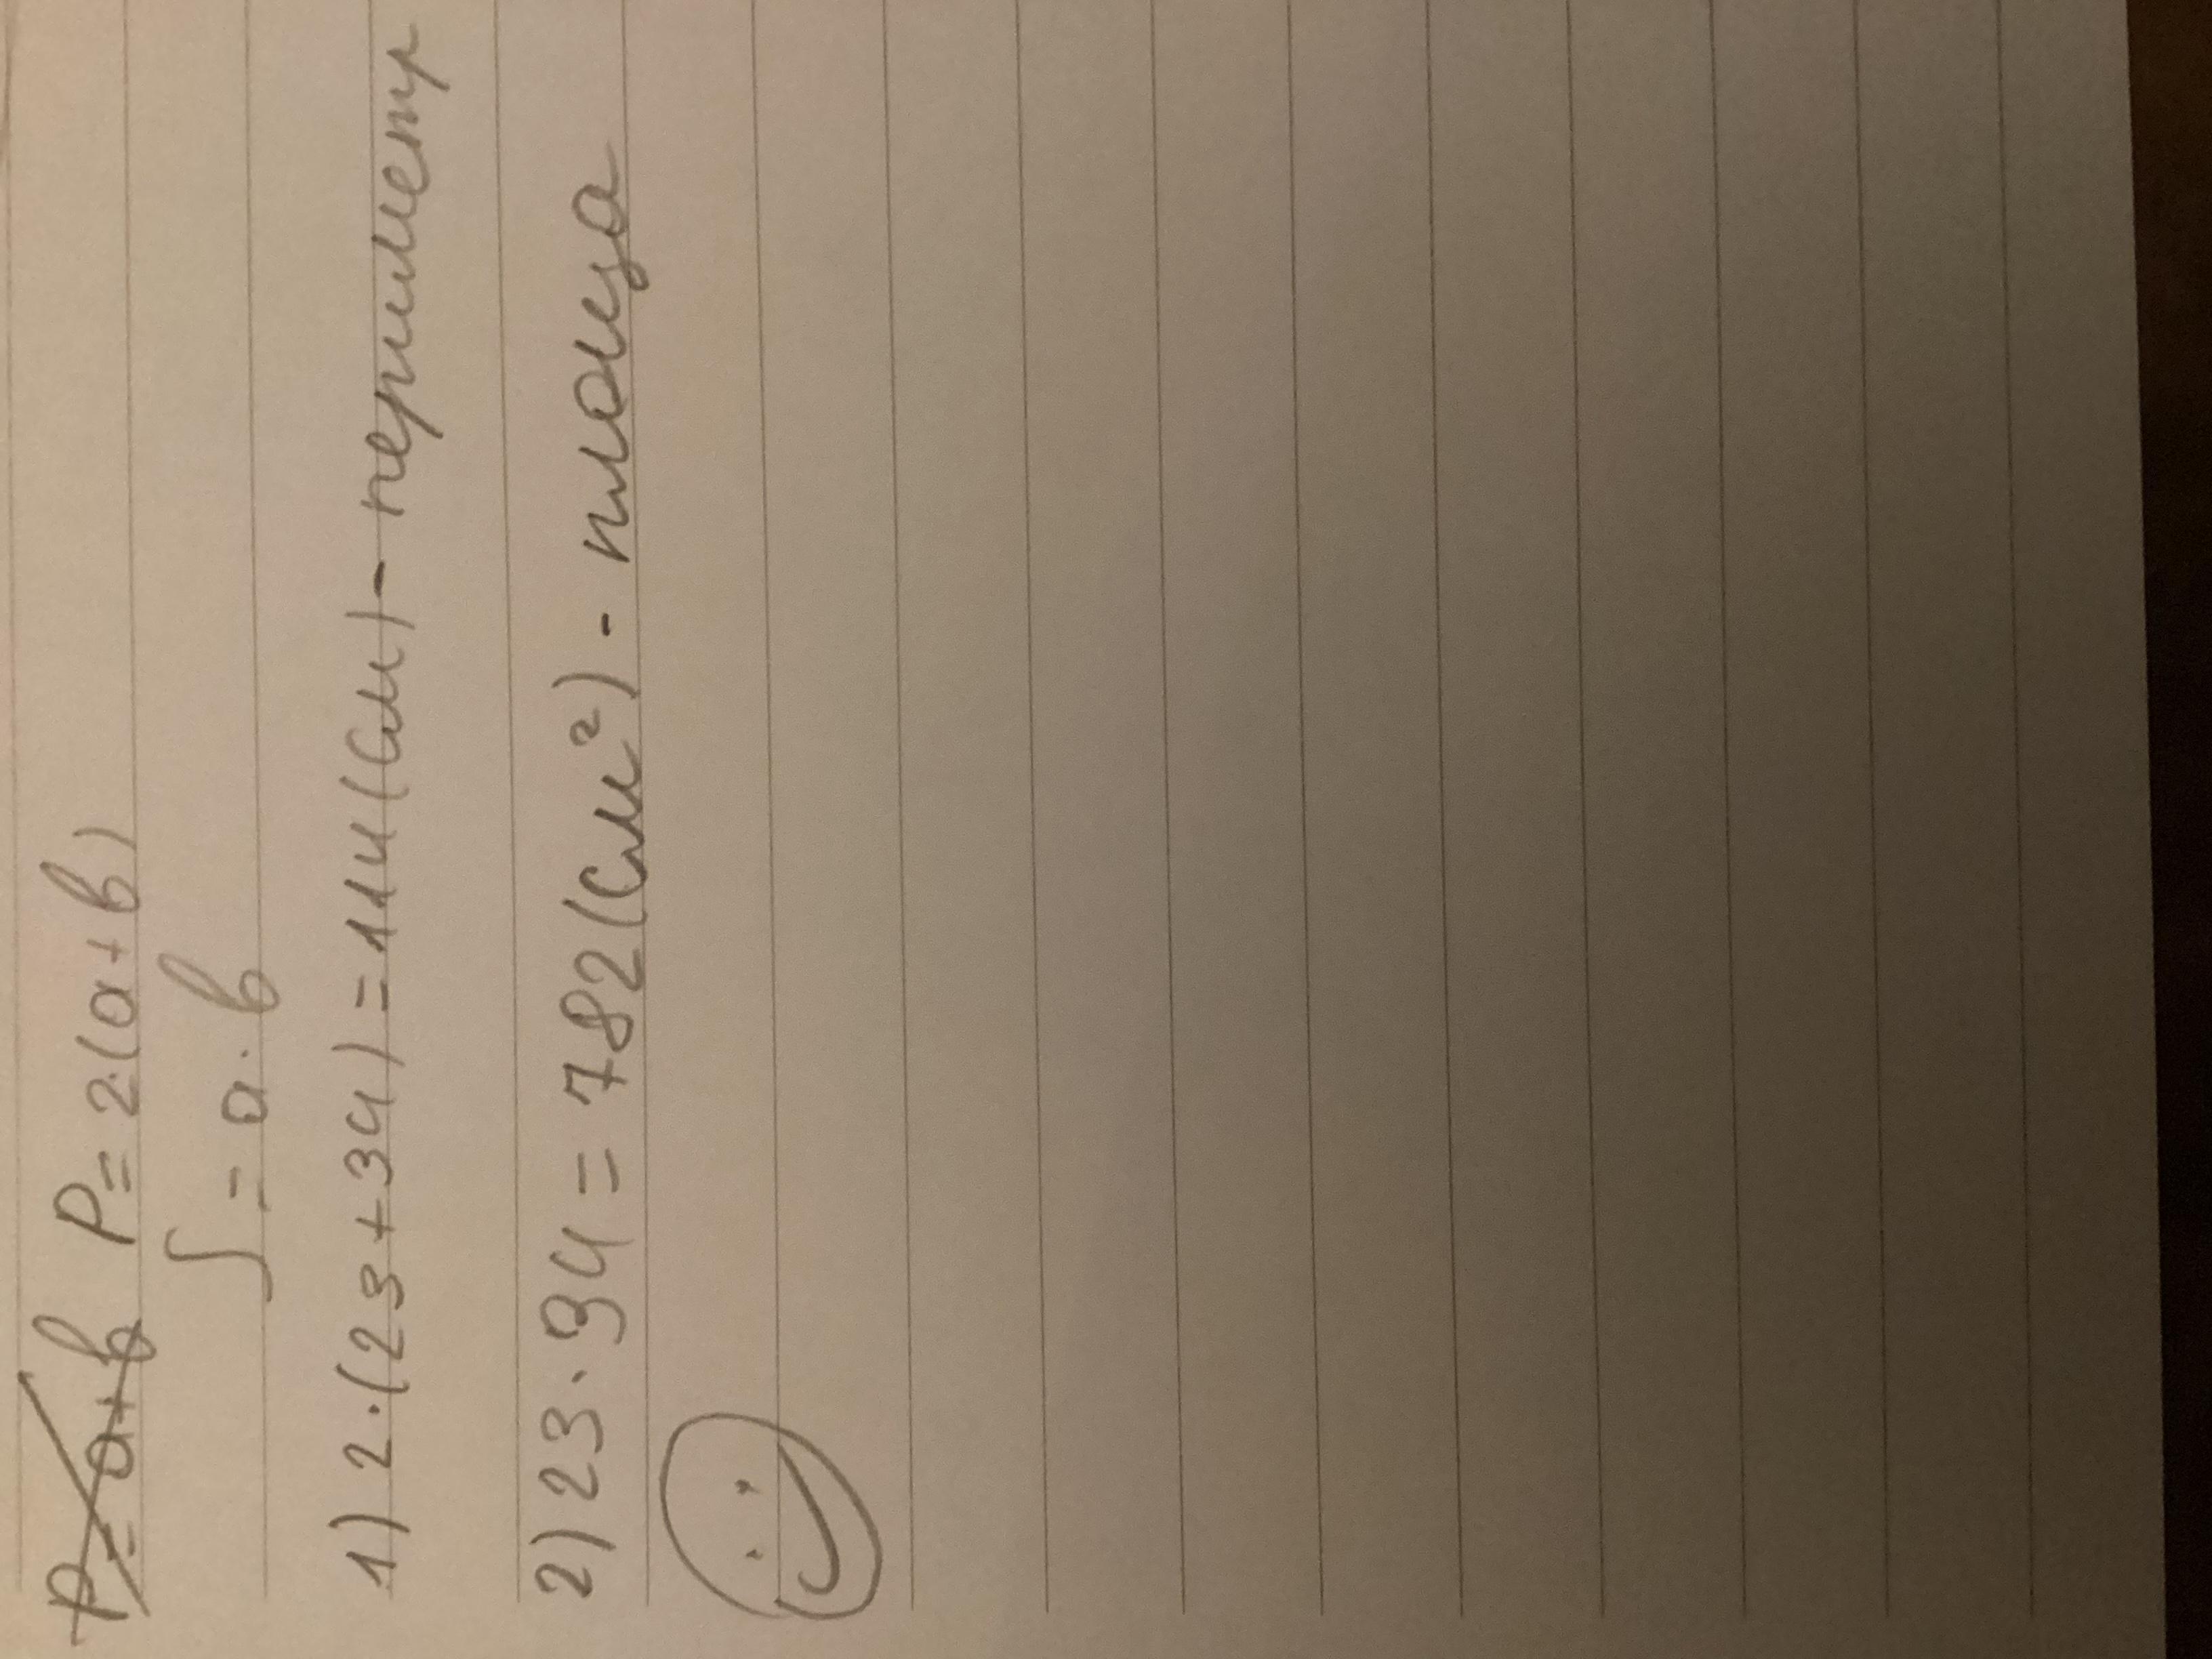 P = a+b P = 2·(a+b)
S = a·b
1) 2·(23+34) = 114 (см) - периметр
2) 23·34 = 782 (см²) - площа